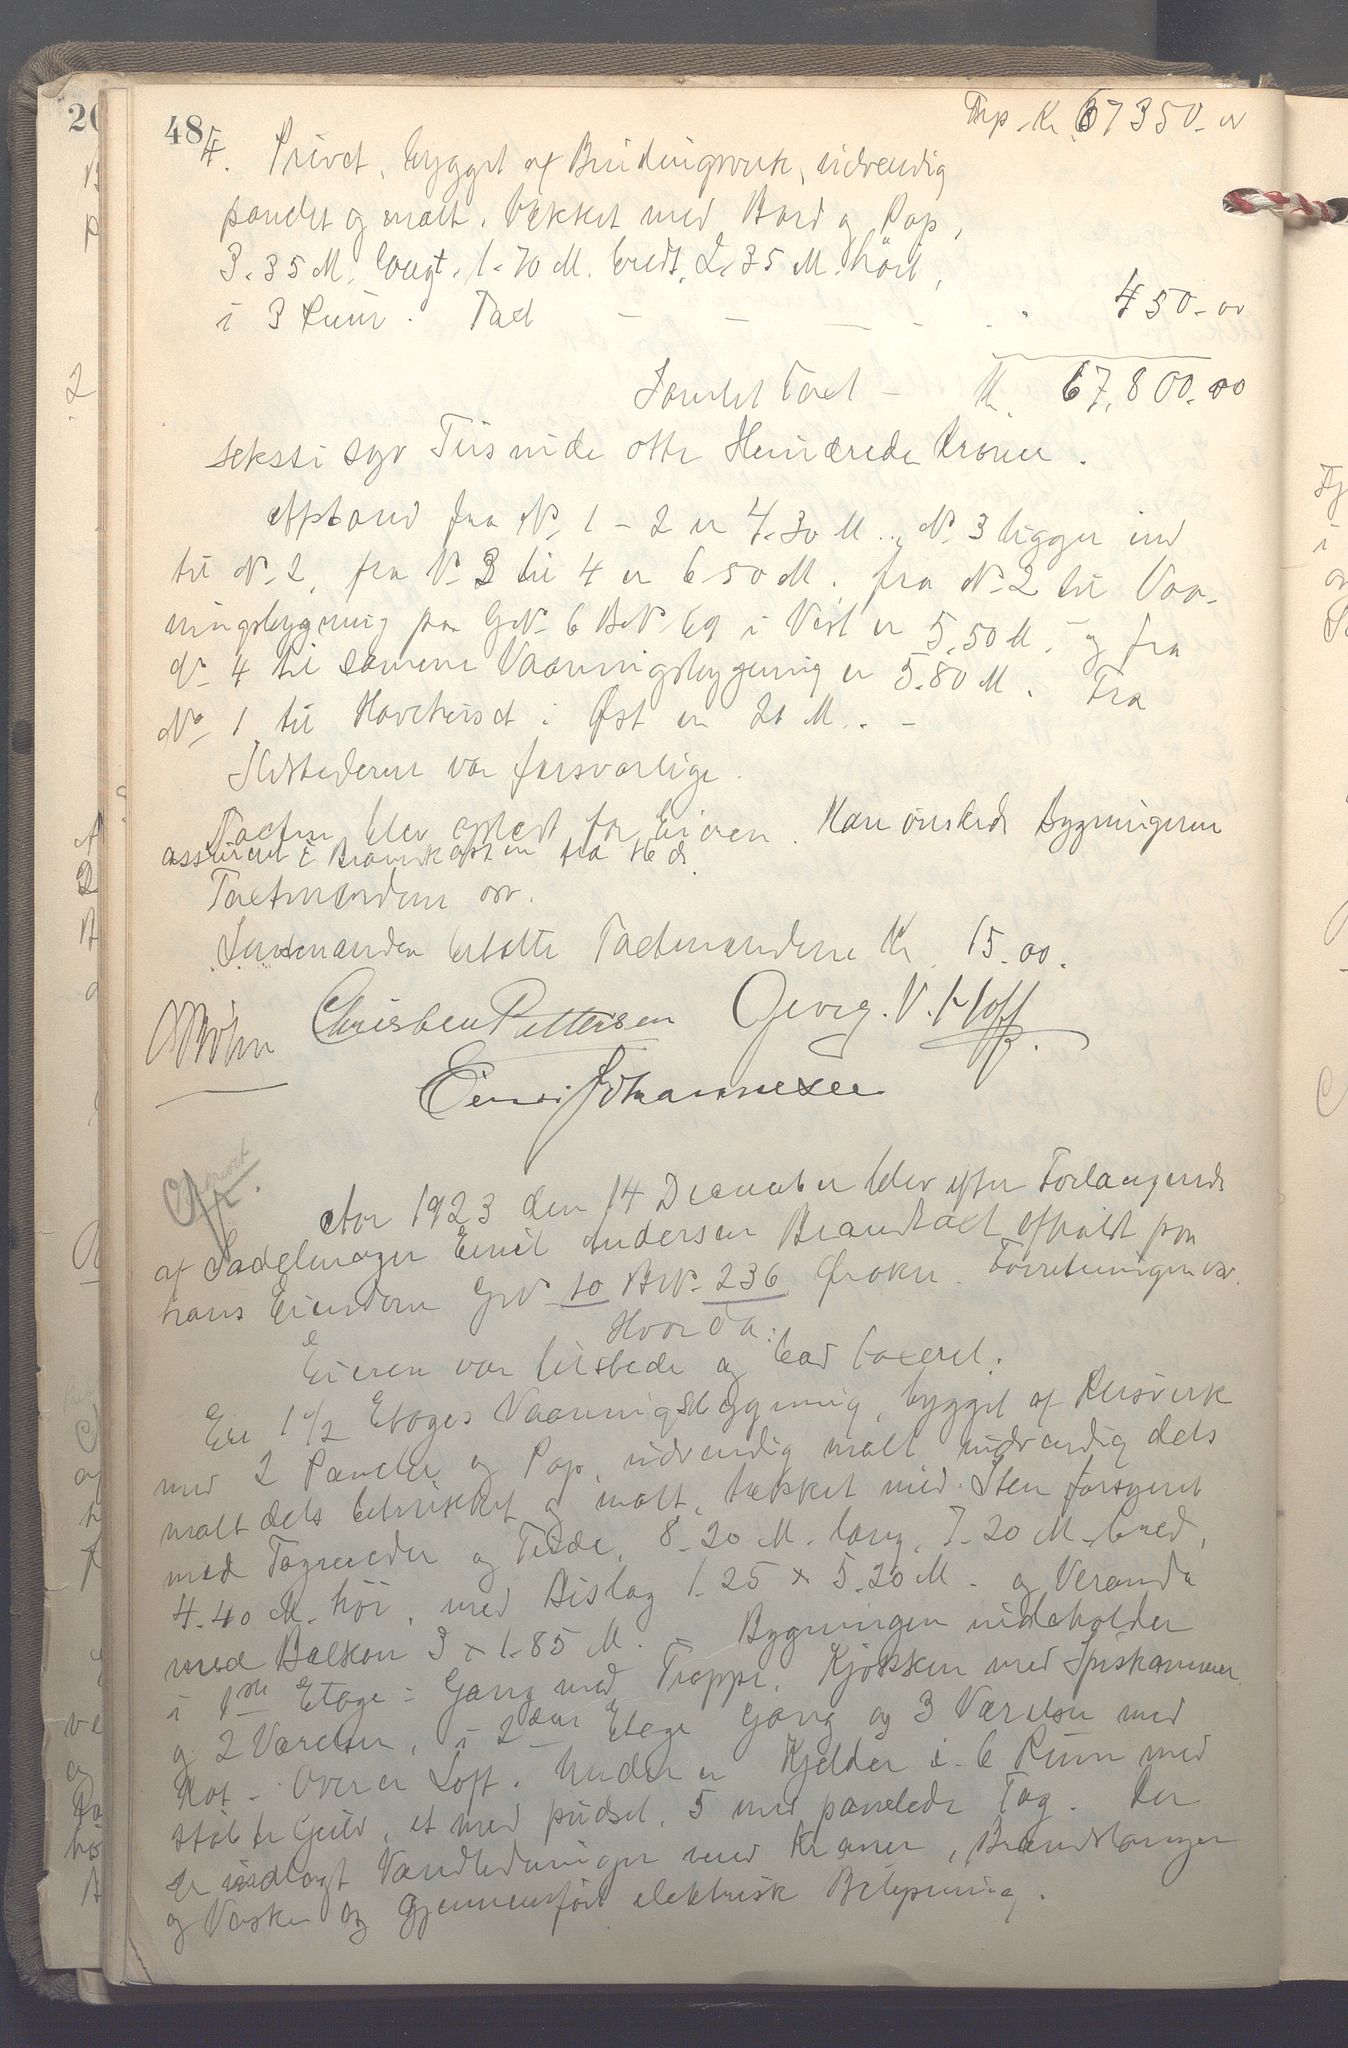 48
Trsp. Kr. 67350-00
4. Privet, bygget af Bindingsverk, udvendig
panelet og malt. Tækket med Bord og Pap,
3-35 M. langt, 1-70 M. bredt, 2-35 M. høit,
i 3 Rum. Taxt — — — - . . 450-00
Samlet Taxt - Kr. 67.800.00
seksti syv Tusinde otte Hundrede Kroner.
Afstand fra No. 1 - 2 er 4-30 M., No. 3 ligger ind
til No. 2, fra No. 3 til 4 er 6-50 M. fra No. 2 til Vaa-
ningsbygning paa GNo. 6 BNo. 69 i Vest er 5,50 M. og fra
No. 4 til samme Vaaningsbygning er 5-80 M. Fra
No. 1 til Havehuset i Øst er 21 M. -
Ildstederne var forsvarlige.
Taxten blev oplæst for Eieren. Han ønskede Bygningerne
assureret i Brandkassen fra 16 ds.
Taxtmændene osv.
Lensmanden betalte Taxtmændene Kr. 15.00.
Christen Pettersen Georg. V. Hoff
Einar Johannesen
Aar 1923 den 14 December blev efter Forlangende
af Sadelmager Emil Andersen Brandtaxt afholdt paa
hans Eiendom GNo. 10 BNo. 236 Øroken. Forretningen var.
Hvorda:
Eieren var tilstede og bad taxeret.
En 1 1/2 Etages Vaaningsbygning, bygget af Reisverk
med 2 Paneler og Pap, udvendig malt, indvendig dels
malt dels betrukket og malt, tækket med Sten forsynet
med Tagrender og Nedløb, 8-20 M. lang, 7-20 M. bred,
4-40 M. høi, med Bislag 1-25 x 5-20 M. og Veranda
med Balkon 3 x 1-85 M. - Bygningen indeholder
i 1ste Etage: Gang med Trappe, Kjøkken med Spiskammer
og 2 Værelser, i 2den Etage Gang og 3 Værelser med
Kot. Over er Loft. Under er Kjelder i 6 Rum med
støbte Gulv, et med pudset, 5 med panelede Tag. Der
er indlagt Vandledninger med Kraner, Brandslanger
og Vasker og gjennemført elektrisk Belysning.